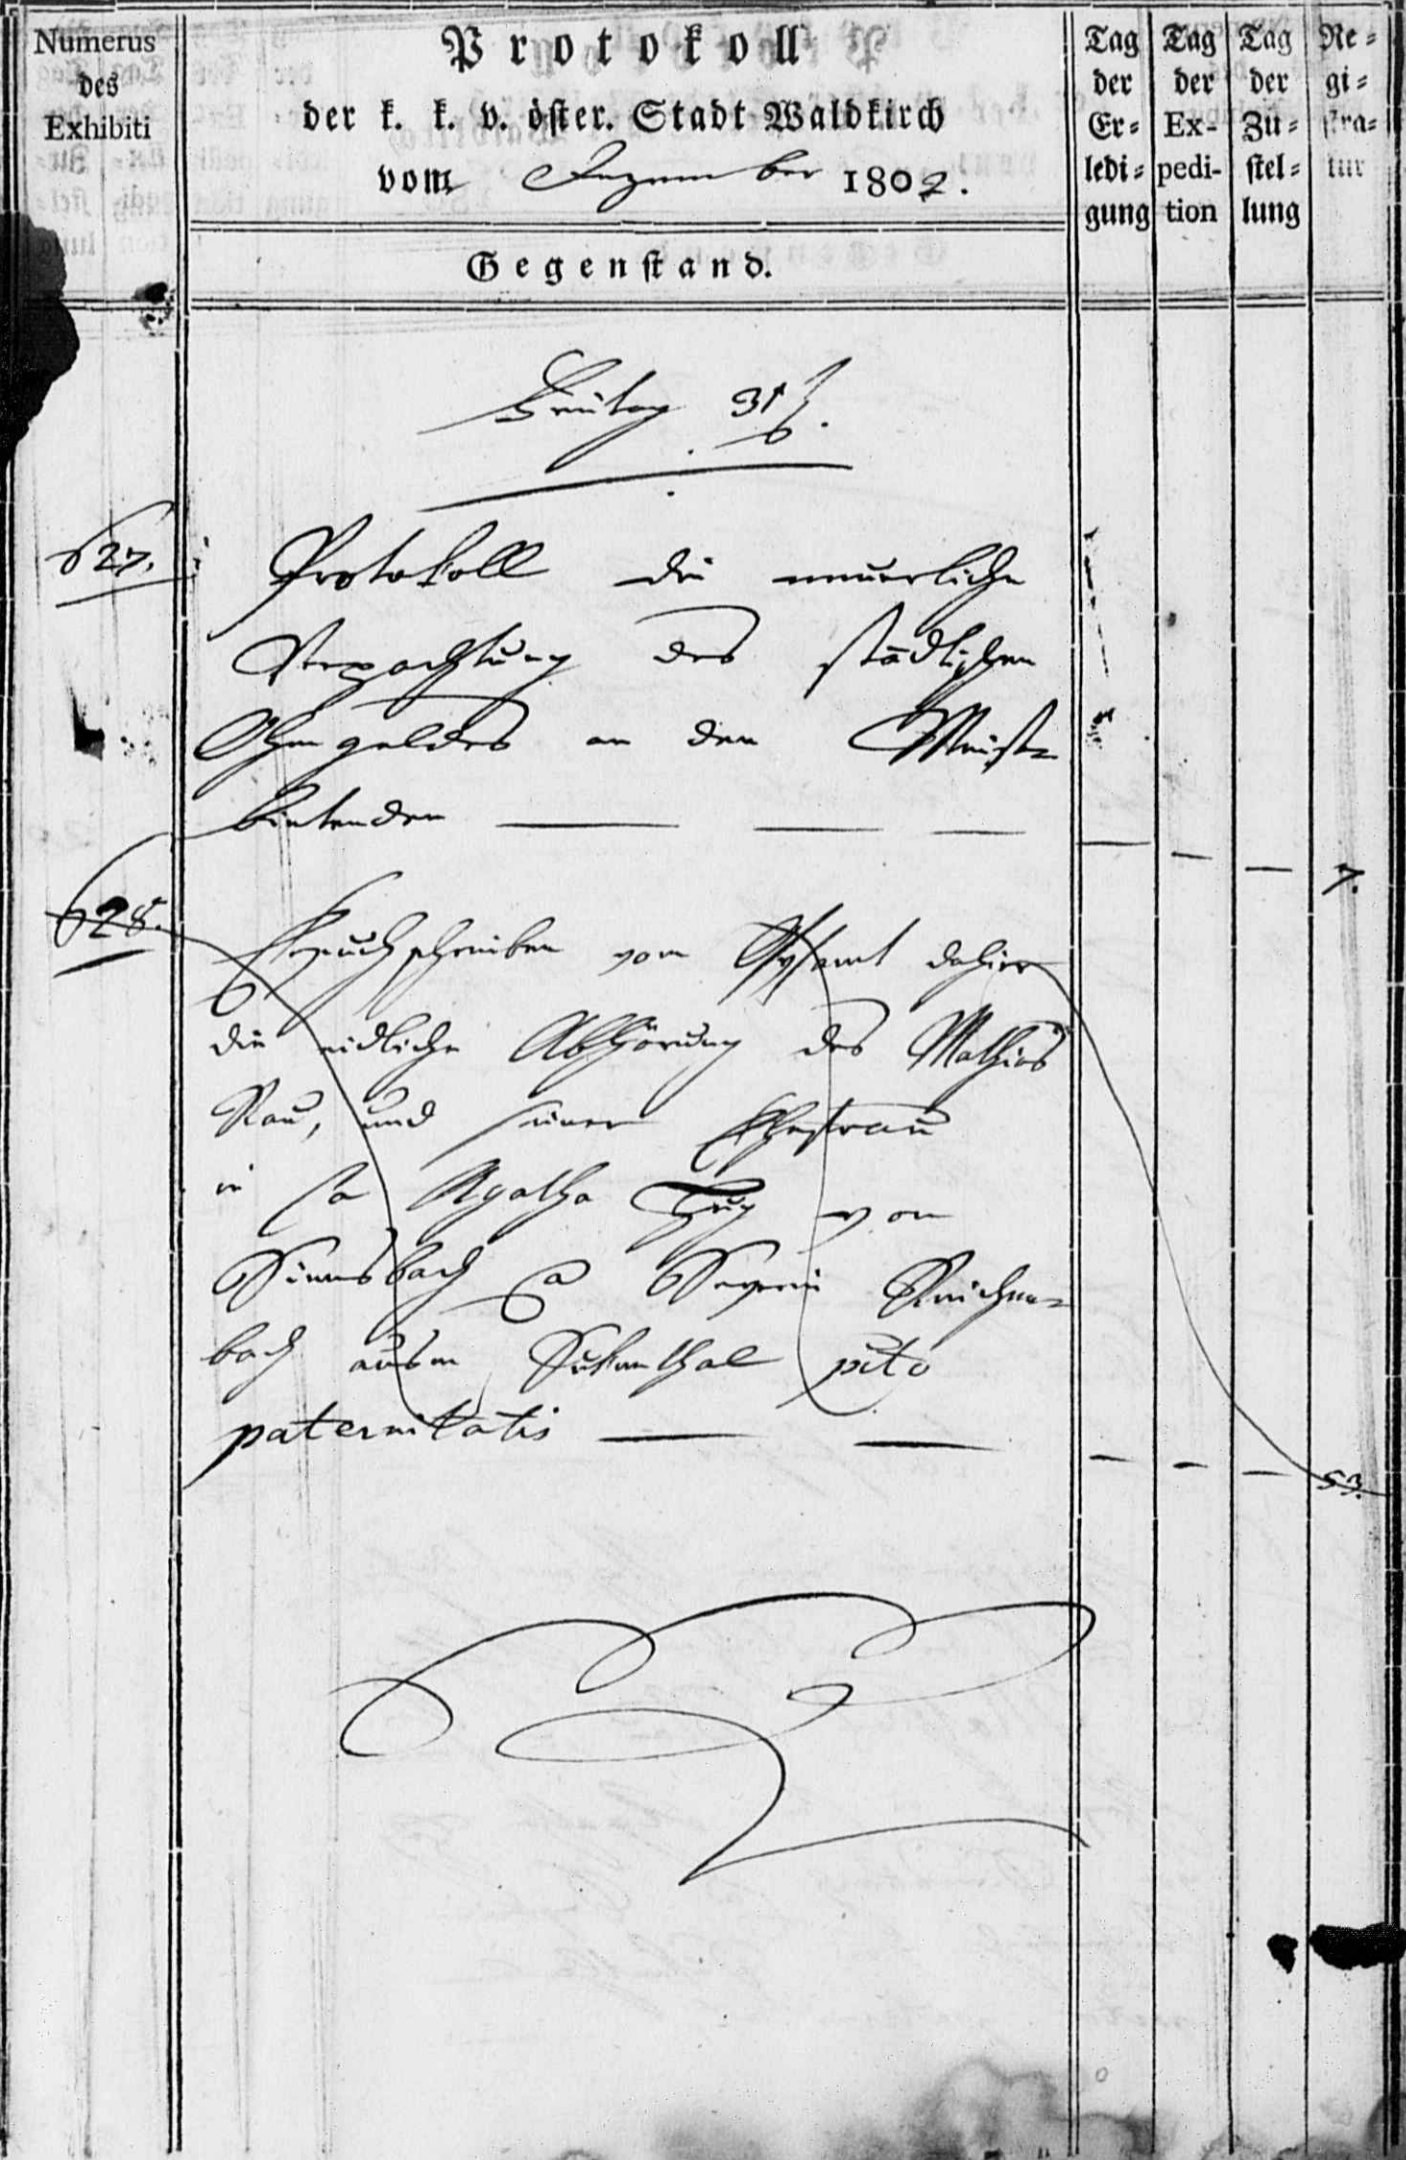 Numerus
des
Exhibiti
Protokoll
der k. k. v. öster. Stadt Waldkirch
vom Dezember 1802.
Gegenstand.
Tag
der
Er-
ledi-
gung
Tag
der
Ex-
pedi-
tion
Tag
der
Zu-
stel-
lung
Re-
gi-
stra-
tur
Freitag 31
627. Protokoll die neuerliche
Verpachtung des städtlichen
Ohmgeldes an den Meist-
bietenden — — — — — — 7.
628. Ersuchschreiben vom Obyamt dahier
die eidliche Abhörung des Mathias
Rau, und seiner Ehefrau
in Ca Agatha Hug von
Siensbach Ca Severin Reichen-
bach aus'm Sukenthal pcto
paternitatis — — — — — 53.